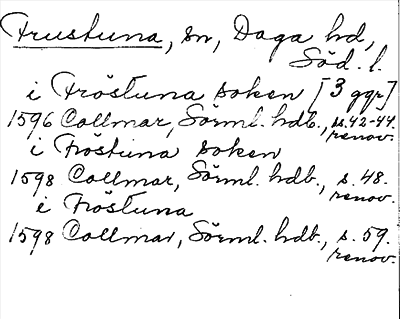 Frustuna, sn, Daga hd,
Söd. l.
i Fröstuna soken [3 ggr]
1596 Collmar, Sörml. hdb., s. 42-44.
renov.
i Fröstuna soken
1598 Collmar, Sörml. hdb., s. 48.
renov.
i Fröstuna
1598 Collmar, Sörml. hdb., s. 59.
renov.